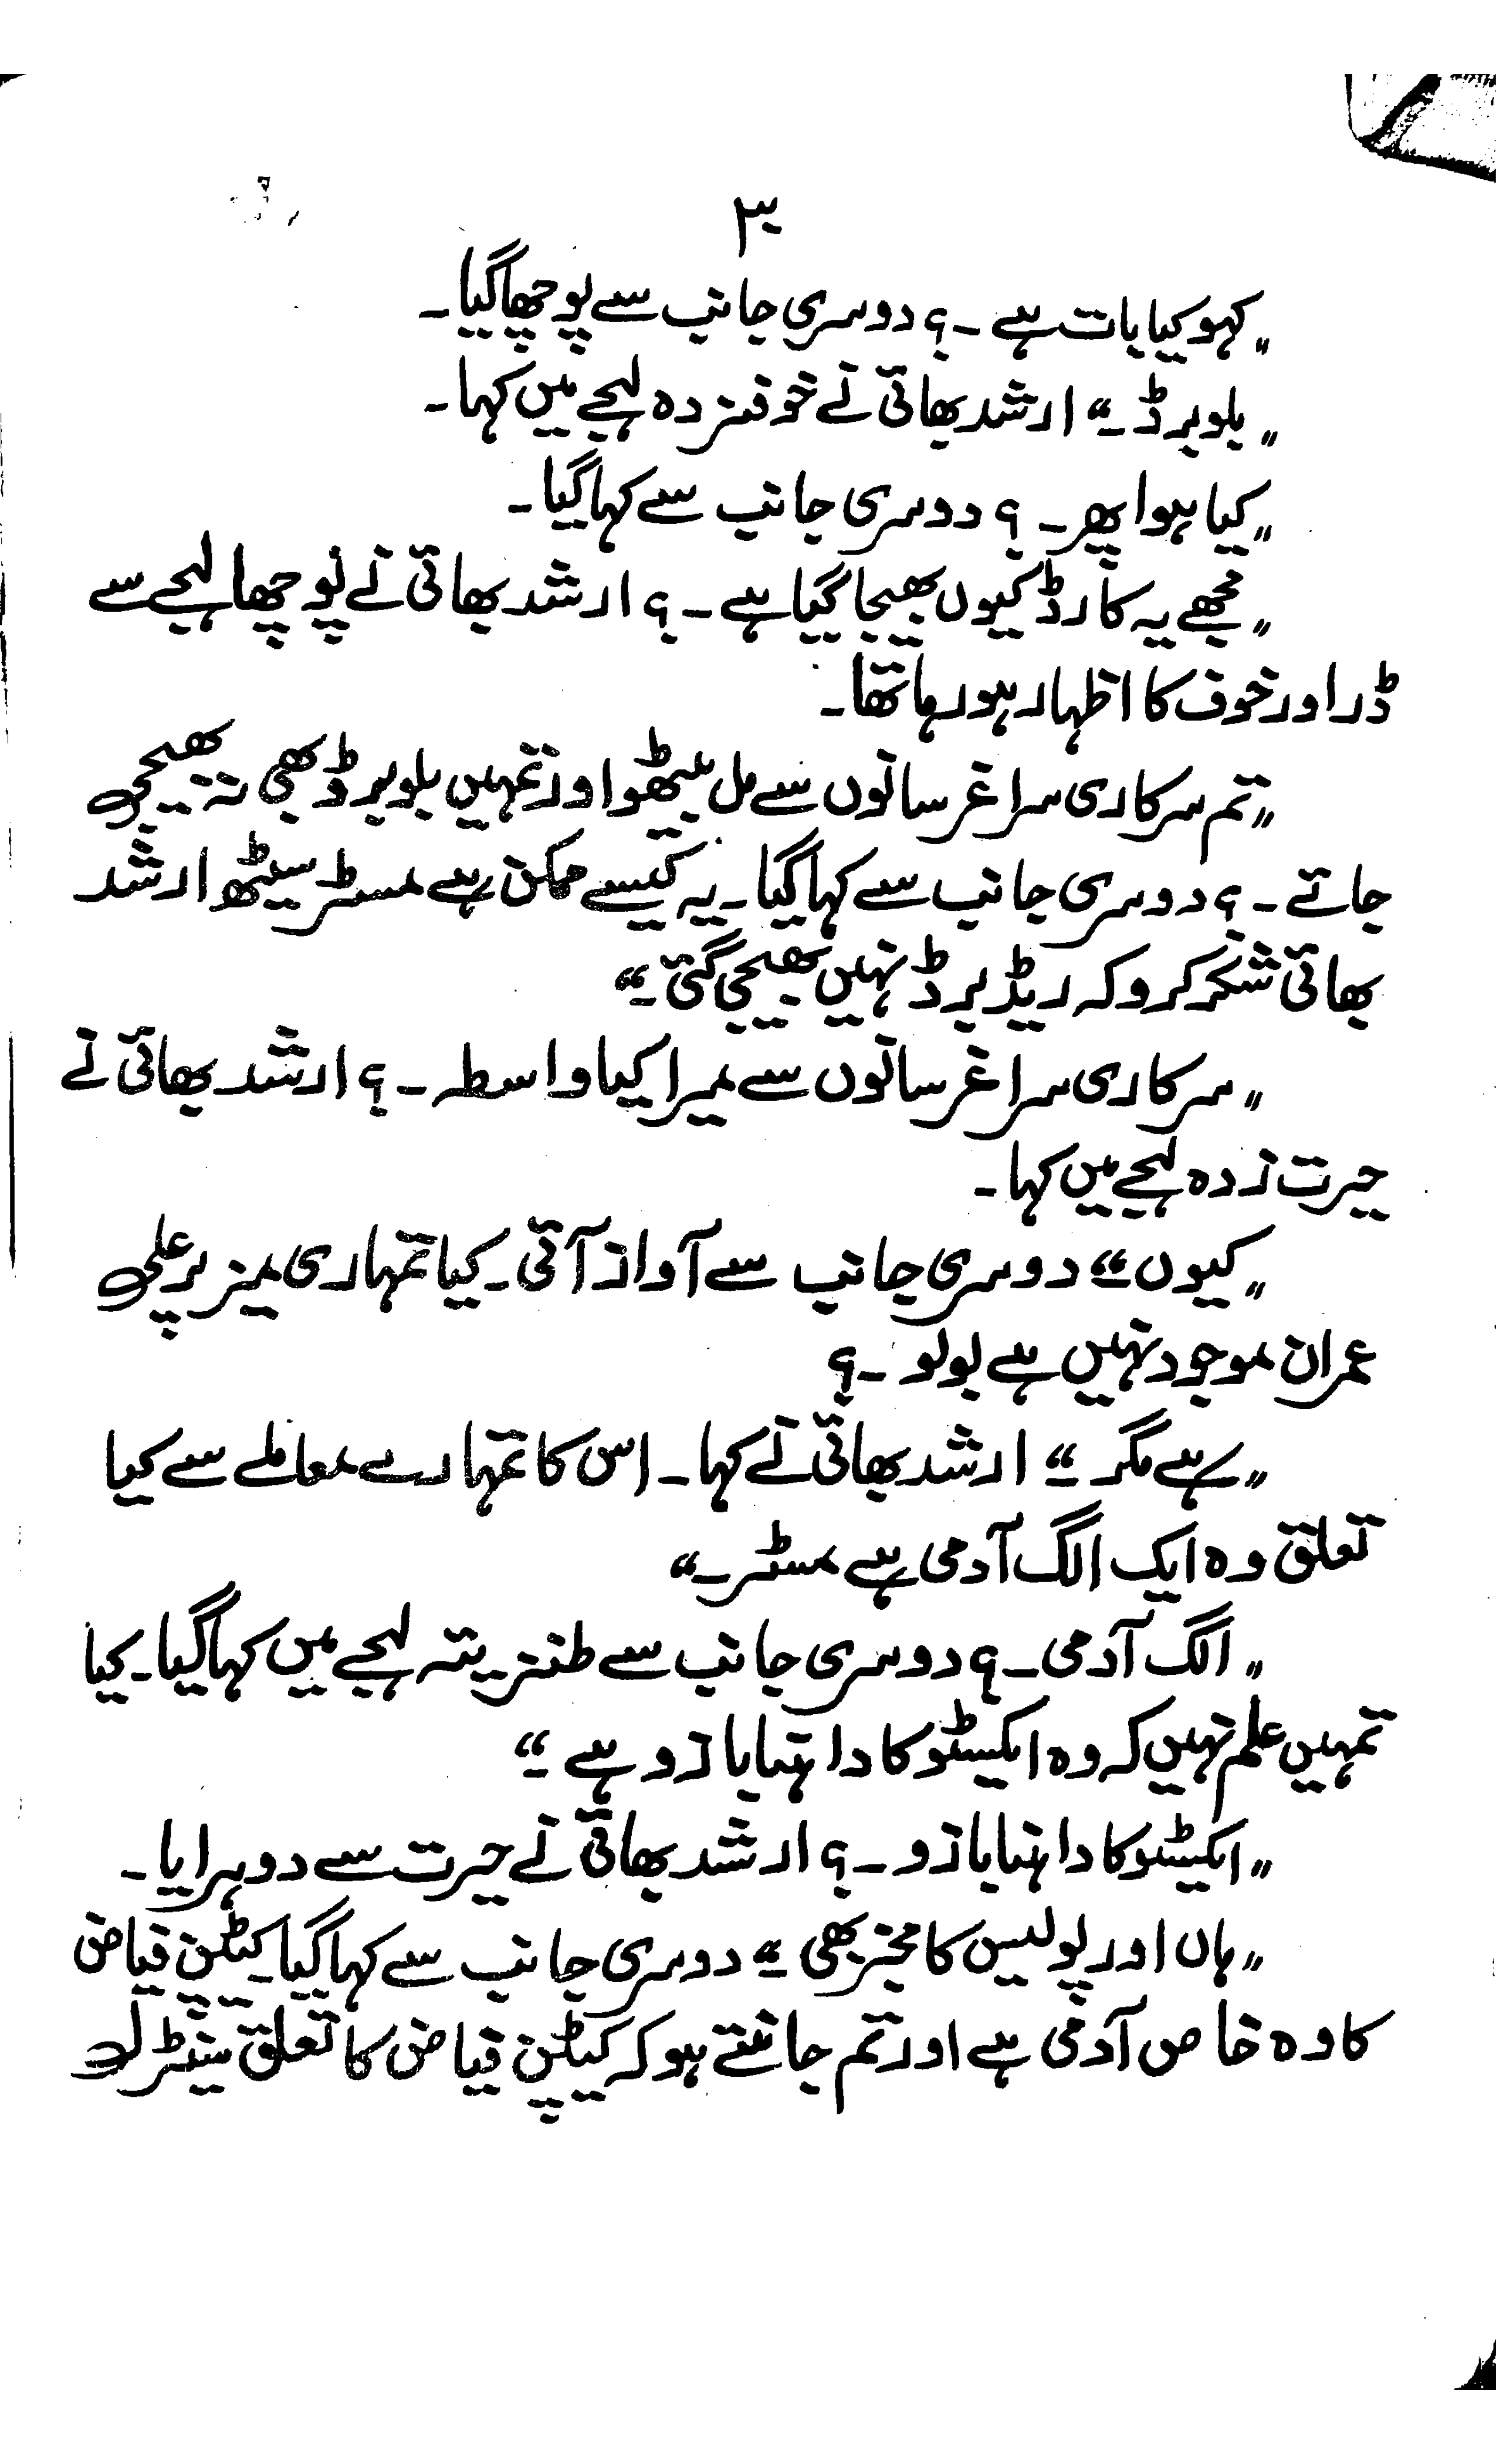 ۳
„کہو کیا بات ہے ۔؟ دوسری جانب سے پوچھا گیا۔
„بلوبرڈ ۔“ ارشد بھائی نے خوفنزدہ لہجے میں کہا۔
„کیا ہوا پھر ۔ ؟ دوسری جانب سے کہا گیا۔
„مجھے یہ کارڈ کیوں بھیجا گیا ہے ۔؟ ارشد بھائی نے پوچھا لہجے سے
ڈر اور خوف کا اظہار ہو رہا تھا۔
„تم سرکاری سراغرسانوں سے مل بیٹھو اور تمہیں بلوبرڈ بھی نہ بھیجی
جائے ۔؟ دوسری جانب سے کہا گیا۔ یہ کیسے ممکن ہے مسٹر سیٹھ ارشد
بھائی شکر کرو کہ ریڈ برڈ نہیں بھیجی گئی ۔“
„سرکاری سراغرسانوں سے میرا کیا واسطہ ۔؟ ارشد بھائی نے
حیرت زدہ لہجے میں کہا۔
„کیوں ۔“ دوسری جانب سے آواز آئی۔ کیا تمہاری میز پر علی
عمران موجود نہیں ہے بولو ۔؟
„ہے مگر ۔“ ارشد بھائی نے کہا۔ اس کا تمہارے معاملے سے کیا
تعلق وہ ایک الگ آدمی ہے مسٹر ۔“
„الگ آدمی ۔؟ دوسری جانب سے طنزیتہ لہجے میں کہا گیا۔ کیا
تمہیں علم نہیں کہ وہ ایکسٹو کا داہنا بازو ہے ۔“
„ایکسٹو کا داہنا بازو ۔؟ ارشد بھائی نے حیرت سے دوہرایا۔
„ہاں اور پولیس کا مخبر بھی ۔“ دوسری جانب سے کہا گیا کیپٹن فیاض
کا وہ خاص آدمی ہے اور تم جانتے ہو کہ کیپٹن فیاض کا تعلق سینٹرل